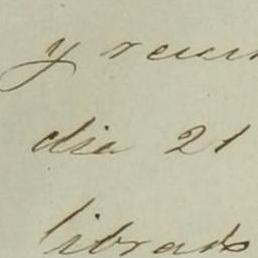 y reun
dia 21
librado